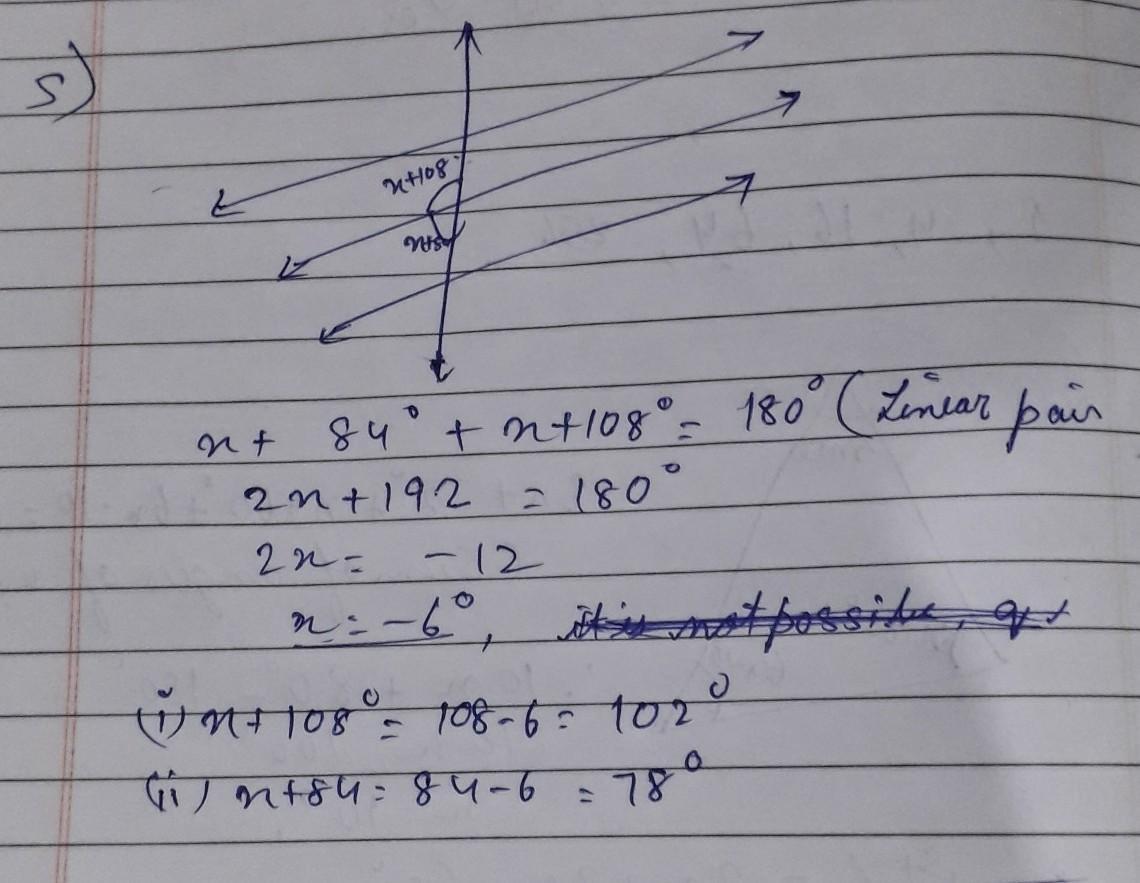 5)
x+108
x+84° + x+108° = 180° (Linear pair
2x+192 = 180°
2x = -12
x = -6°, it is not possible,
(i) x+108° = 108-6 = 102°
(ii) x+84 = 84-6 = 78°